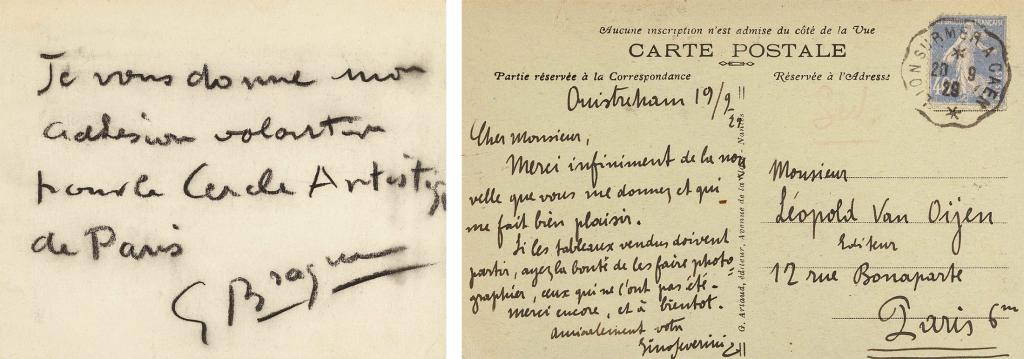 Je vous donne mon
adhésion volontier
pour le Cercle Artistiq
de Paris
G Braque
Aucune inscription n'est admise du côté de la Vue
CARTE POSTALE
Partie réservée à la Correspondance
Réservée à l'Adresse
Ouistreham 19/9
29
Cher Monsieur,
Merci infiniment de la nou
velle que vous me donnez et qui
me fait bien plaisir.
Si les tableaux vendus doivent
partir, ayez la bonté de les faire photo
graphier, ceux qui ne l'ont pas été.
merci encore, et à bientôt.
amicalement votre
Gino Severini
G. Artaud, éditeur, Avenue de la Nantes
Monsieur
Léopold Van Oijen
Editeur
12 rue Bonaparte
Paris 6m
LION SUR MER A CAEN
20 9
29